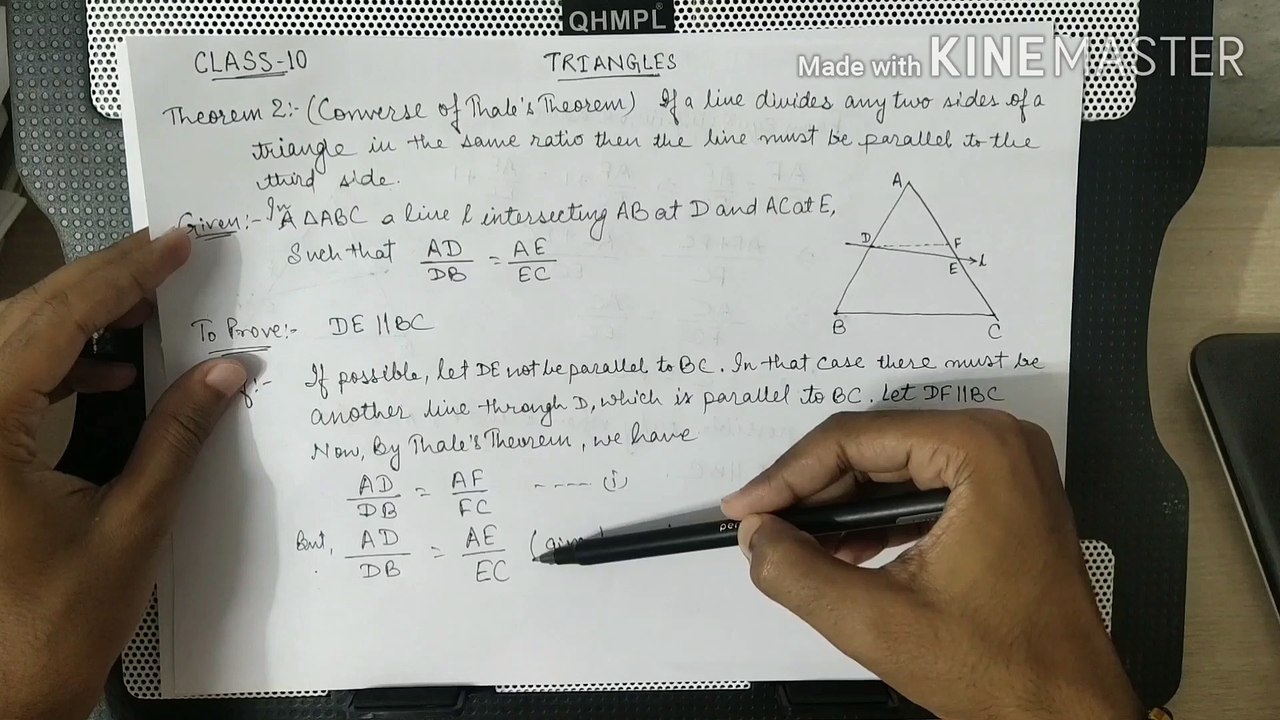 QHMPL
Made with KINEMASTER
CLASS-10
TRIANGLES
Theorem 2:- (Converse of Thale's Theorem) If a line divides any two sides of a
triangle in the same ratio then the line must be parallel to the
third side.
Given:- In A △ABC a line l intersecting AB at D and AC at E,
Such that AD/DB = AE/EC
A
D
F
E
l
B
C
To Prove:- DE || BC
If possible, let DE not be parallel to BC. In that case there must be
another line through D, which is parallel to BC. Let DF || BC
Now, By Thale's Theorem, we have
AD/DB = AF/FC ---- (i)
But, AD/DB = AE/EC